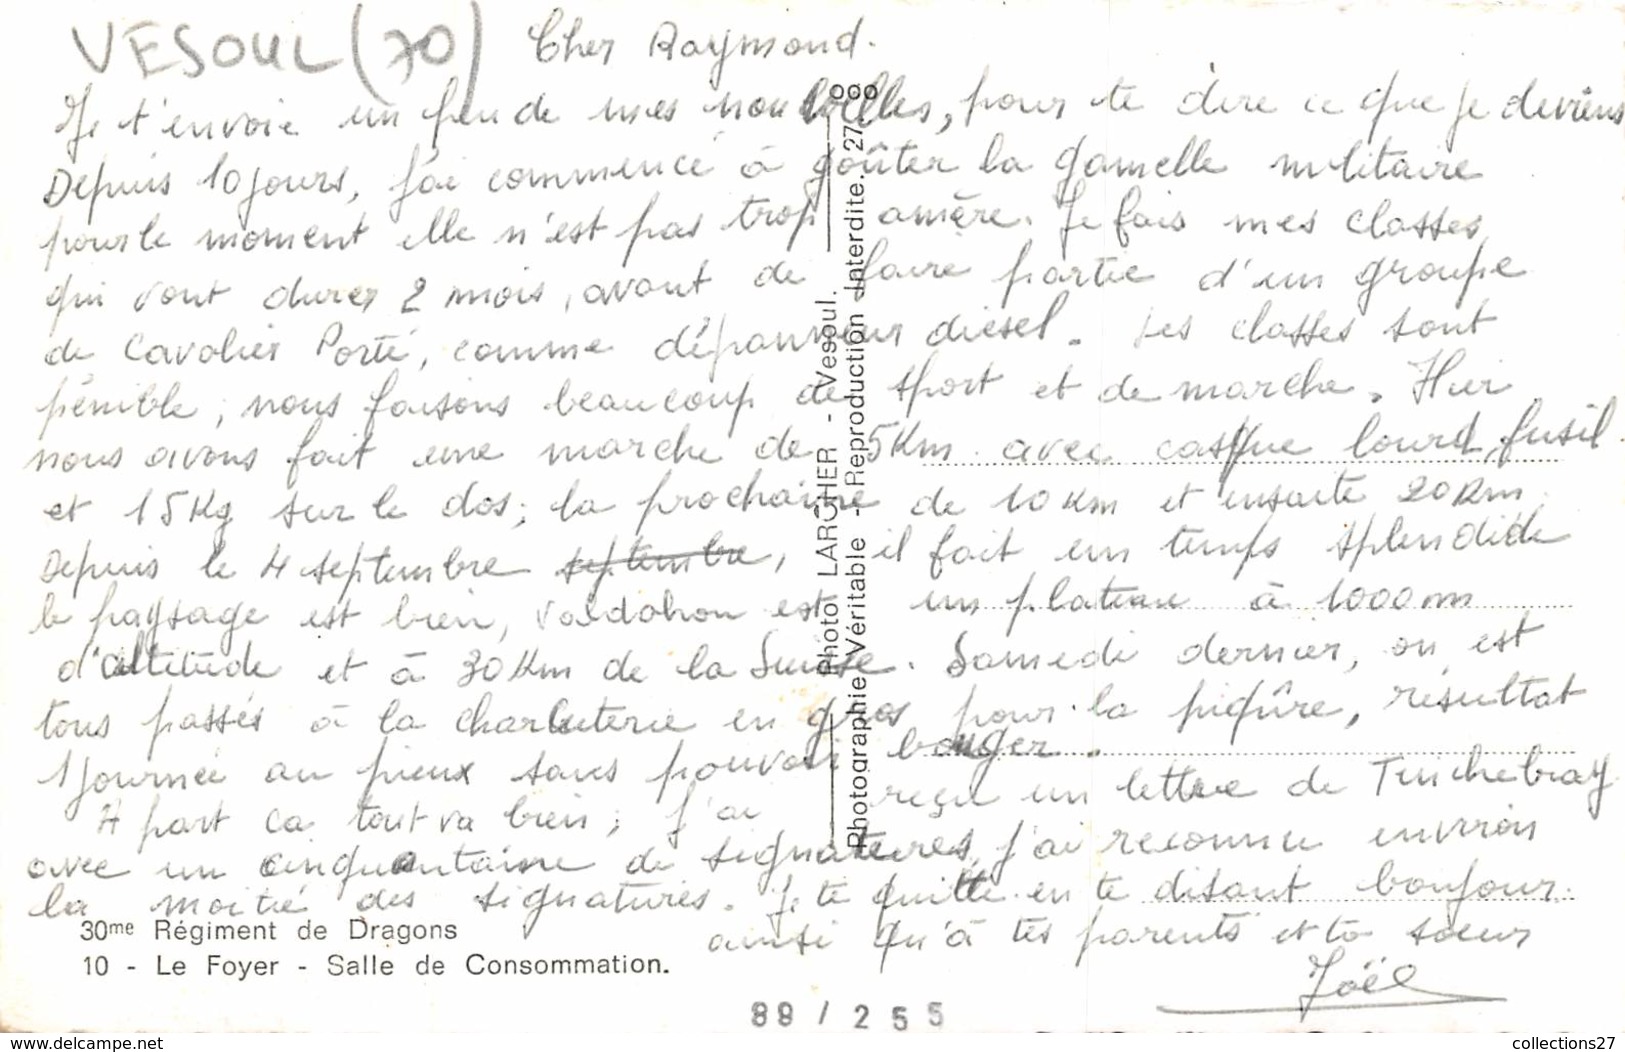 VESOUL (70) Cher Raymond.
Je t'envoie un peu de mes nouvelles, pour te dire ce que je deviens
Depuis 10 jours, j'ai commencé à goûter la gamelle militaire
pour le moment elle n'est pas trop amère. Je fais mes classes
qui vont durer 2 mois, avant de faire partie d'un groupe
de Cavalier Porté, comme dépanneur diesel. Les classes sont
pénible, nous faisons beaucoup de sport et de marche. Hier
nous avons fait une marche de 5Km avec casque lourd, fusil
et 15Kg sur le dos; la prochaine de 10 Km et ensuite 20 Km.
Depuis le 4 septembre septembre, il fait un temps splendide
le paysage est bien, Valdahon est un plateau à 1000 m
d'altitude et à 30 Km de la Suisse. Samedi dernier, on est
tous passés à la charcuterie en gros pour la piqûre, résultat
1 journée au pieux sans pouvoir bouger.
A part ca tout va bien; j'ai reçu un lettre de Tinchebray
avec un cinquantaine de signatures, j'ai reconnu environ
la moitié des signatures. Je te quitte en te disant bonjour
ainsi qu'à tes parents et ta soeur
Joël
30me Régiment de Dragons
10 - Le Foyer - Salle de Consommation.
Photo LARCHER - Vesoul.
Photographie Véritable - Reproduction Interdite. 27
000
88 / 255
collections27